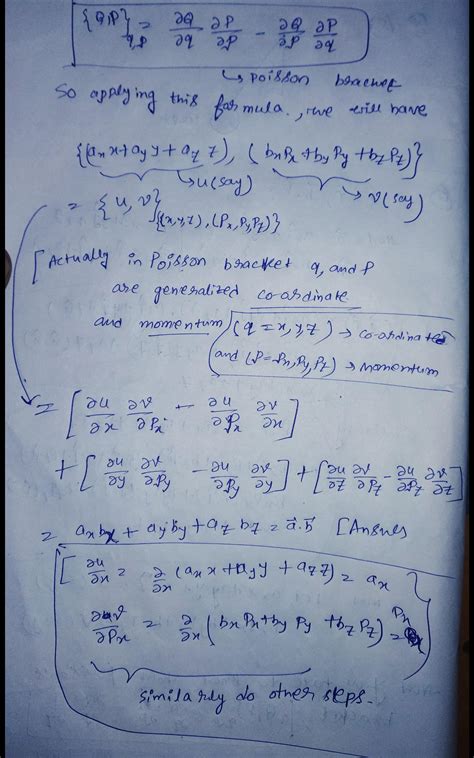 {Q,P}_{q,p} = ∂Q/∂q ∂P/∂p - ∂Q/∂p ∂P/∂q
↳ Poisson bracket
So applying this formula., we will have
{(a_x x + a_y y + a_z z), (b_x P_x + b_y P_y + b_z P_z)}
↳ u(say) ↳ v(say)
= {u, v}_{(x,y,z), (P_x,P_y,P_z)}
[Actually in Poisson bracket q, and P
are generalized co-ordinate
and momentum (q = x, y, z) → co-ordinate
and (P = P_x, P_y, P_z) → Momentum
= [∂u/∂x ∂v/∂P_x - ∂u/∂P_x ∂v/∂x]
+ [∂u/∂y ∂v/∂P_y - ∂u/∂P_y ∂v/∂y] + [∂u/∂z ∂v/∂P_z - ∂u/∂P_z ∂v/∂z]
= a_x b_x + a_y b_y + a_z b_z = a⃗.b⃗ [Answer
[∂u/∂x = ∂/∂x (a_x x + a_y y + a_z z) = a_x
∂v/∂P_x = ∂/∂x (b_x P_x + b_y P_y + b_z P_z) = P_x
similarly do other steps.